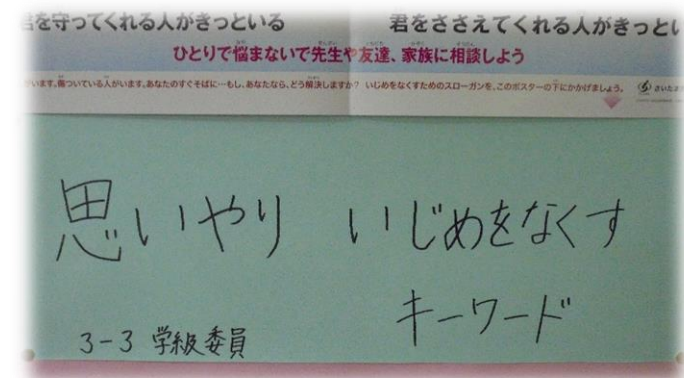 君を守ってくれる人がきっといる 君をささえてくれる人がきっとい
ひとりで悩まないで先生や友達、家族に相談しよう
います。傷ついている人がいます。あなたのすぐそばに…もし、あなたなら、どう解決しますか? いじめをなくすためのスローガンを、このポスターの下にかかげましょう。
思いやり いじめをなくす
キーワード
3-3 学級委員